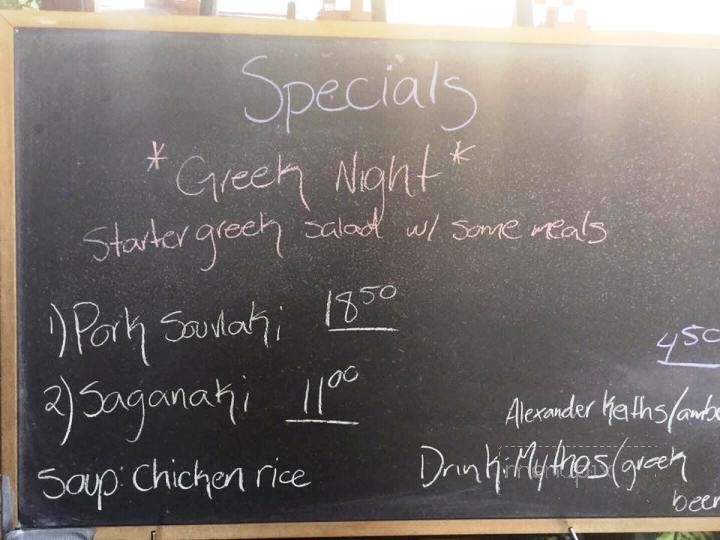 Specials
*Greek Night*
Starter greek salad w/ some meals
1) Pork Souvlaki 18⁵⁰
2) Saganaki 11⁰⁰
Soup: Chicken rice
4⁵⁰
Alexander Keiths/ambe
Drink: Mythos (greek
beer